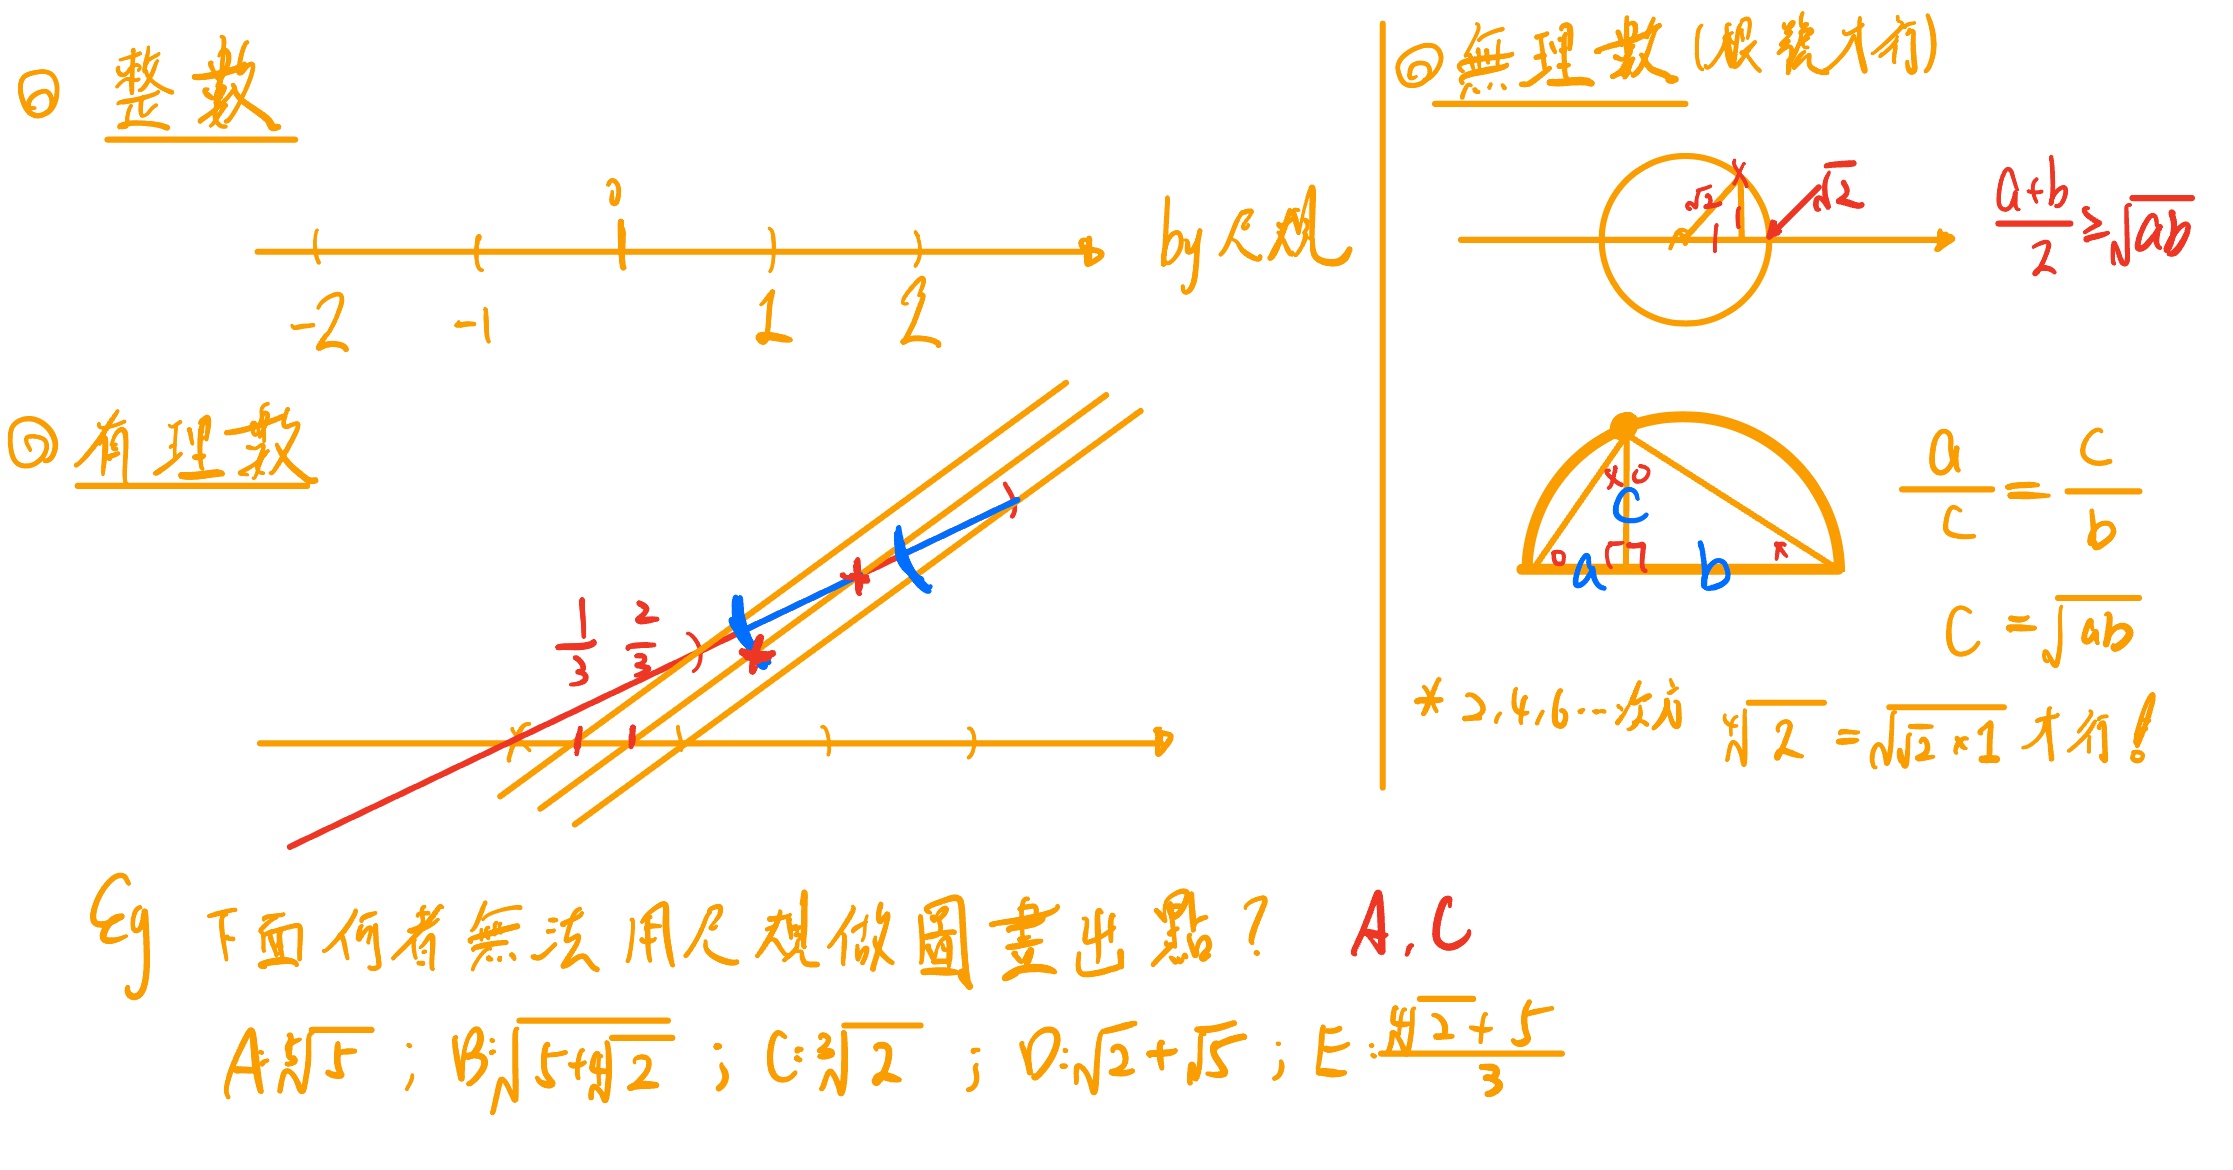 ◎ 整數
0
-2 -1 1 2
by 尺規
◎ 有理數
1/3 2/3
◎ 無理數 (根號才行)
√2 1 1 √2
(a+b)/2 ≥ √ab
× o
c
o a b ×
a/c = c/b
c = √ab
* 2,4,6…次方 ∜2 = √(√2×1) 才行!
Eg 下面何者無法用尺規做圖畫出點? A, C
A: ⁵√5 ; B: √(5+∜2) ; C: ³√2 ; D: √2+√5 ; E: (∜2+5)/3